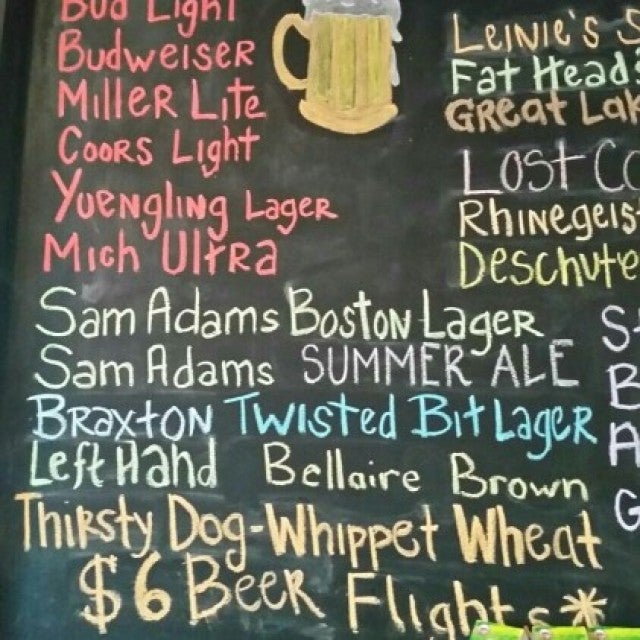 Bud Light
Budweiser
Miller Lite
Coors Light
Yuengling Lager
Mich Ultra
Sam Adams Boston Lager
Sam Adams SUMMER ALE
Braxton Twisted Bit Lager
Left Hand Bellaire Brown
Thirsty Dog-Whippet Wheat
$6 Beer Flights*
Leinie's
Fat Head's
Great
Lost